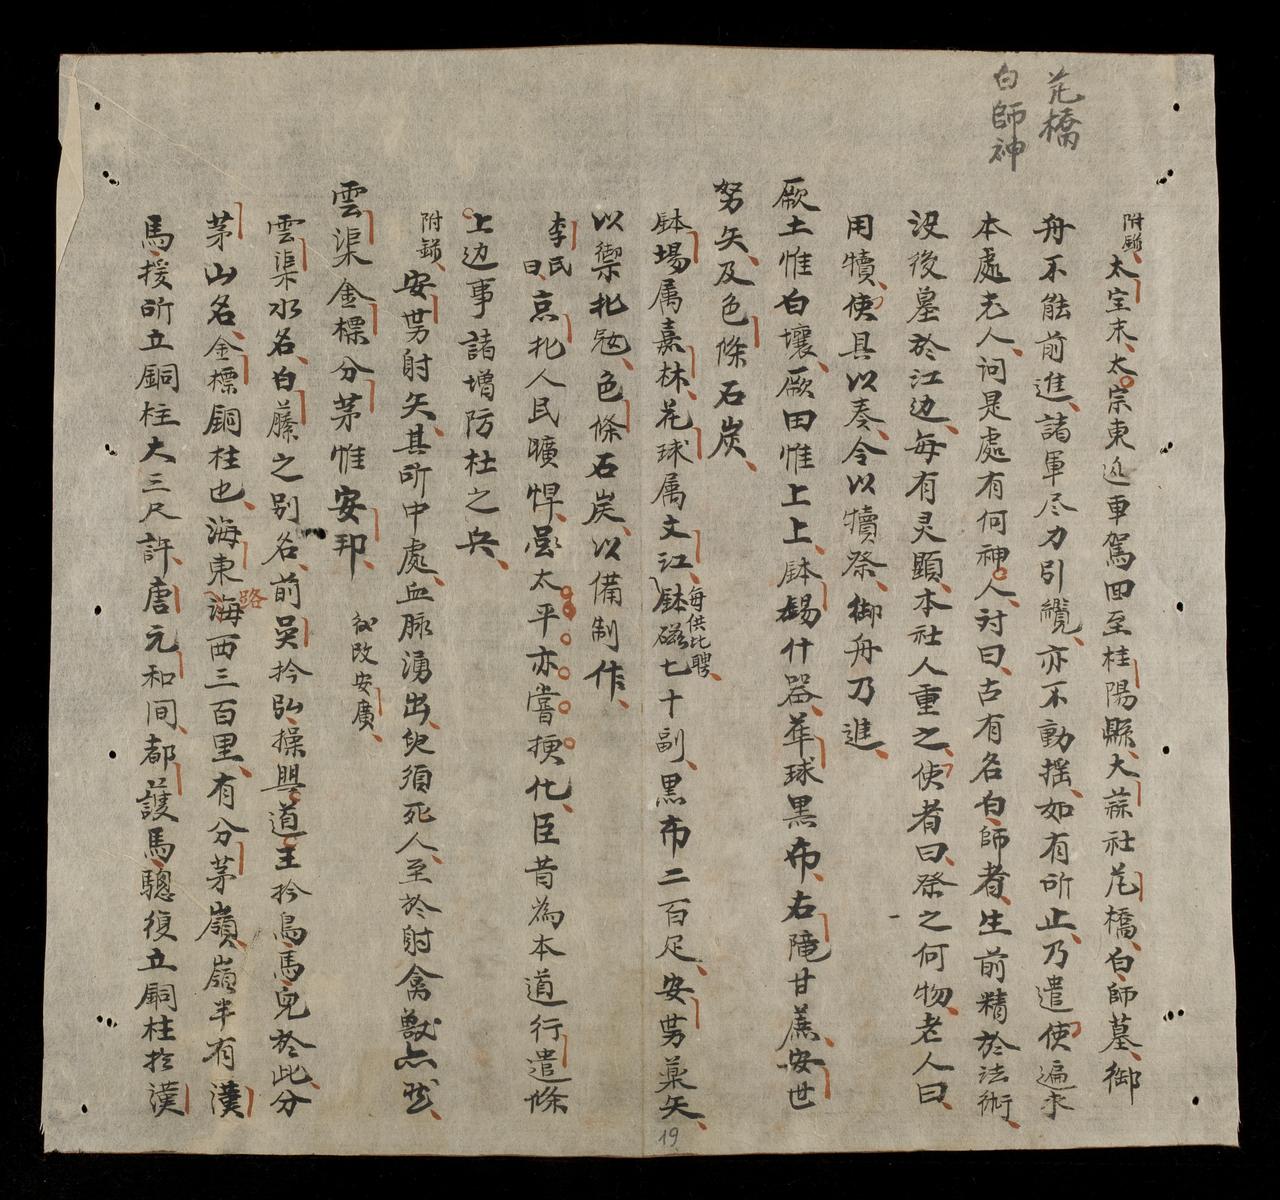 芘橋
白師神
附録太宝末太宗東巡車駕回至桂陽縣大蒜社芘橋白師墓御
舟不能前進諸軍尽力引纜亦不動揺如有所止乃遣使遍求
本處老人问是處有何神人対曰古有名白師者生前精於法術
没後墓於江边每有灵顕本社人重之使者曰祭之何物老人曰
用犢使具以奏令以犢祭御舟乃進
厥土惟白壤厥田惟上上鉢錫什器華球黒布右隌甘蔗安世
努矢及色條石炭
鉢場属嘉林花球属文江鉢磁七十副每供比聘黒布二百疋安男藥矢
以禦北冦色條石炭以備制作
李氏曰京北人民曠悍曇太平亦嘗挭化臣昔為本道行遣條
上边事請增防杜之兵
附録安男射矢其所中處血脉湧出兒須死人至於射禽獣亦然
雲渠金標分茅惟安邦 後改安廣
雲渠水名白藤之別名前吳扵弘操興道王扵烏馬兒於此分
茅山名金標銅柱也海東海路西三百里有分茅嶺嶺半有漢
馬援所立銅柱大三尺許唐元和间都護馬驄復立銅柱扵漢
19